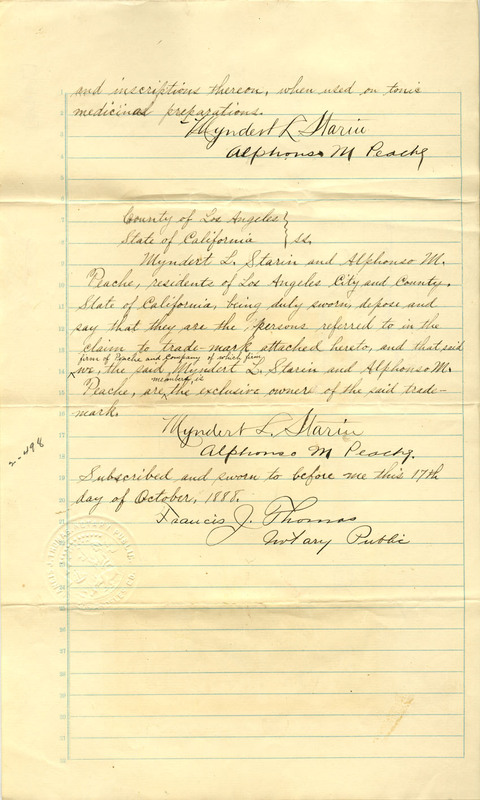 and inscriptions thereon, when used on tonic
medicinal preparations.
Myndert L Starin
Alphonso M Peache
County of Los Angeles }
State of California } ss.
Myndert L. Starin and Alphonso M.
Peache, residents of Los Angeles City and County,
State of California, being duly sworn, depose and
say that they are the persons referred to in the
claim to trade-mark attached hereto, and that said
firm of Peache and Company of which firm
we, the said Myndert L. Starin and Alphonso M.
members, is
Peache, are the exclusive owners of the said trade-
mark.
Myndert L. Starin
Alphonso M Peache,
2-498
Subscribed and sworn to before me this 17th
day of October, 1888.
Francis J. Thomas
Notary Public